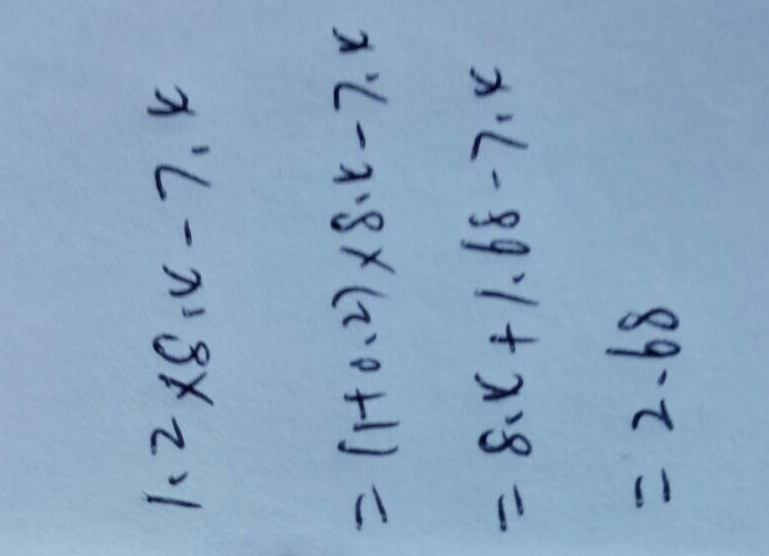 1.2×8.4-7.4
=(1+0.2)×8.4-7.4
=8.4+1.68-7.4
=2.68